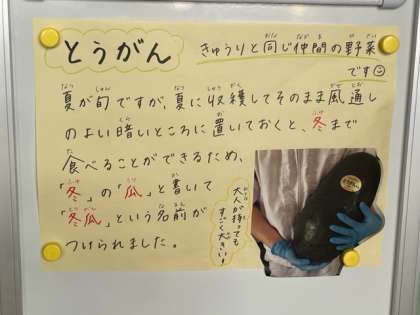 とうがん
きゅうりと同じ仲間の野菜
です
夏が旬ですが、夏に収穫してそのまま風通し
のよい暗いところに置いておくと、冬まで
食べることができるため、
「冬」の「瓜」と書いて
「冬瓜」という名前が
つけられました。
大人が持っても
すごく大きい!